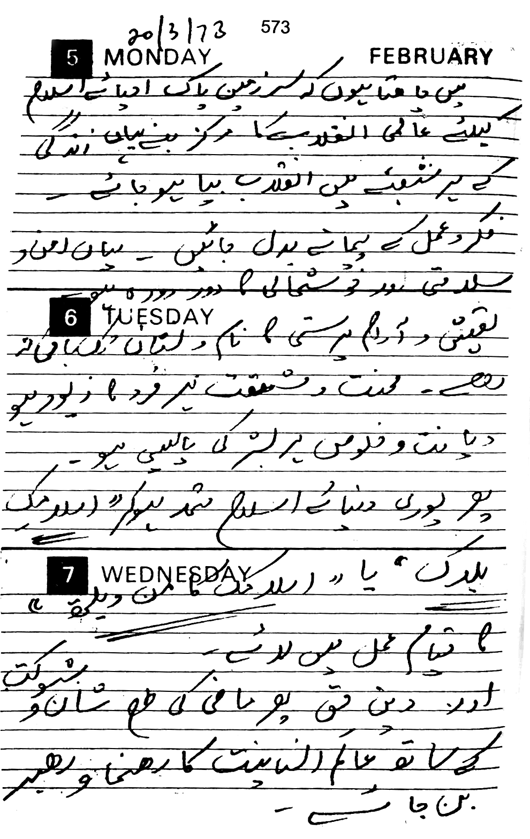 20/3/73
573
5 MONDAY FEBRUARY
میں چاہتا ہوں کہ سرزمین پاک احیائے اسلام
کیلئے عالمی انقلاب کا مرکز بنے یہاں زندگی
کے ہر شعبے میں انقلاب بپا ہو جائے ۔
فکر و عمل کے پیمانے بدل جائیں ۔ یہاں امن و
سلامتی اور خوشحالی کا دور دورہ ہو۔
6 TUESDAY
تعیش و آرام پرستی کا نام و نشان تک باقی نہ
رہے ۔ محنت و مشقت ہر فرد کا زیور ہو
دیانت و خلوص ہر بشر کی پالیسی ہو۔
پھر پوری دنیائے اسلام متحد ہو کر "اسلامک
7 WEDNESDAY
بلاک" یا "اسلامک کامن ویلتھ"
کا قیام عمل میں لائے ۔
اور دین حق پھر ماضی کی طرح شان و شوکت
کے ساتھ عالم انسانیت کا رهنما و رهبر
بن جائے ۔